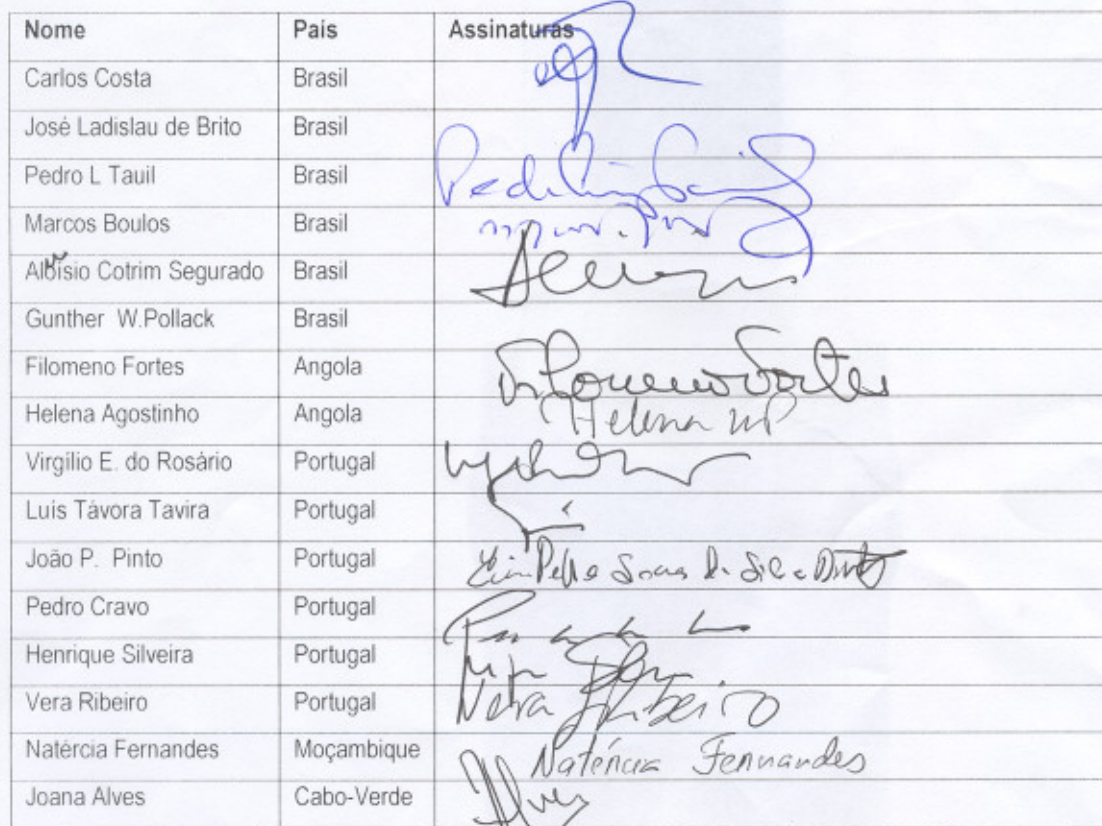 Nome País Assinaturas
Carlos Costa Brasil
José Ladislau de Brito Brasil
Pedro L Tauil Brasil
Marcos Boulos Brasil
Aloísio Cotrim Segurado Brasil
Gunther W.Pollack Brasil
Filomeno Fortes Angola Filomeno Fortes
Helena Agostinho Angola Helena
Virgílio E. do Rosário Portugal
Luís Távora Tavira Portugal
João P. Pinto Portugal
Pedro Cravo Portugal
Henrique Silveira Portugal
Vera Ribeiro Portugal Vera Ribeiro
Natércia Fernandes Moçambique Natércia Fernandes
Joana Alves Cabo-Verde Alves